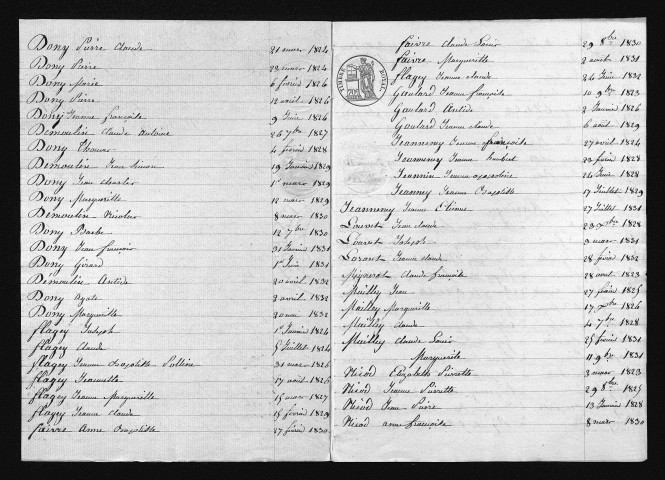 Dony Pierre Claude 21 mars 1824
Dony Pierre 22 mars 1824
Dony Marie 6 février 1826
Dony Pierre 12 avril 1826
Dony Jeanne françoise 9 Juin 1826
Demoulin Claude Antoine 26 7bre 1827
Dony Thomas 4 février 1828
Demoulin Jean Simon 19 Janvier 1829
Dony Jean charles 1er mars 1829
Dony Marguerite 12 mars 1829
Demoulin Nicolas 8 mars 1830
Dony Barbe 12 7bre 1830
Dony Jean françois 31 Janvier 1831
Dony Girard 1er Juin 1831
Demoulin Antide 20 avril 1832
Dony Agate 2 avril 1832
Dony Marguerite 2 1832
flagey Joseph 1er Janvier 1824
flagey Claude 5 Juillet 1824
flagey Jeanne hyppolitte 31 mars 1826
flagey Jeannette 17 avril 1826
flagey Jeanne Marguerite 15 mars 1827
flagey Jeanne claude 15 février 1829
faivre Anne hyppolitte 27 février 1830
faivre claude Louis 29 8bre 1830
faivre Marguerite 2 avril 1831
flagey Jeanne claude 24 Juin 1832
Goulard Jeanne françoise 10 9bre 1823
Goulard Antide 2 Janvier 1826
Goulard Jeanne claude 6 avril 1829
TIMBRE ROYAL
Jeanneney Jeanne françoise 27 avril 1824
Jeanneney Jeanne 29 février 1828
Jeannin Jeanne 26 Juin 1828
Jeanney Jeanne hyppolitte 17 Juillet 1829
Jeanneney Jeanne Etienne 27 Juillet 1831
Louvet Jean claude 23 Xbre 1828
Louvet Joseph 9 mars 1831
Jeanne claude 28 février 1832
claude françois 28 avril 1823
Mailley Jean 27 février 1825
Mailley Marguerite 17 Xbre 1826
Mailley claude 4 7bre 1828
Mailley Claude Louis 25 février 1831
Marguerite 11 9bre 1831
Nicod Elizabeth Pierrette 3 mars 1823
Nicod Jeanne Pierrette 29 8bre 1825
Nicod Jean Pierre 13 Janvier 1828
Nicod anne françoise 8 mars 1830